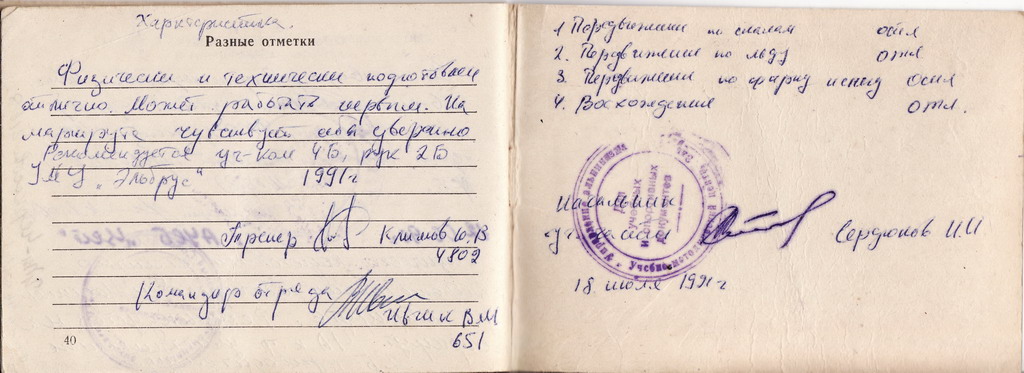 Характеристика.
Разные отметки
Физически и технически подготовлен
отлично. Может работать первым. На
маршруте чувствует себя уверенно
Рекомендуется уч-ком 4Б, рук 2Б
УМЦ "Эльбрус" 1991г
Тренер Климов Ю.В
4802
Командир отряда
Ившин В.М
651
40
1 Передвижение по скалам отл
2. Передвижение по льду отл
3. Передвижение по фирну и снегу отл
4. Восхождения отл.
Для
учебных
документов
Учебно-метод
Начальник
уч. части Сердюков И.И
18 июля 1991г